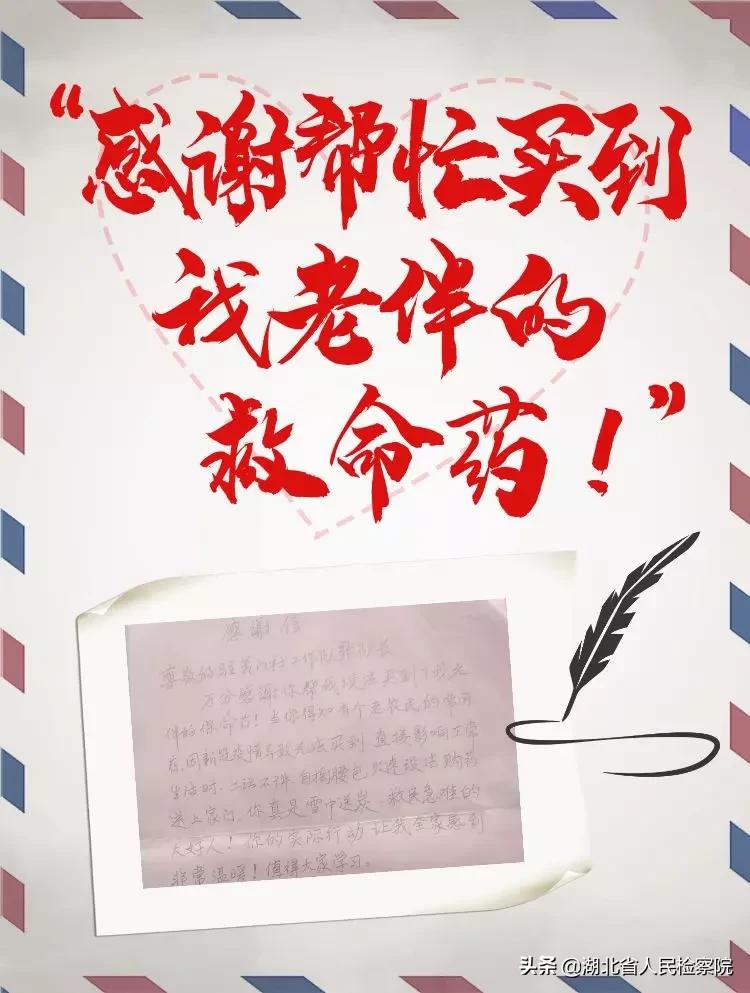 “感谢帮忙买到
我老伴的
救命药！”
感谢信
尊敬的驻 村工作队 队长
万分感谢你帮我设法买到了我老
伴的保命药！当你得知有个老农民的常用
药，因新冠疫情导致无法买到，直接影响正常
生活时，二话不讲，自掏腰包，火速设法购药
送上家门，你真是雪中送炭，救民急难的
大好人！你的实际行动让我全家感到
非常温暖！值得大家学习。
头条 @湖北省人民检察院